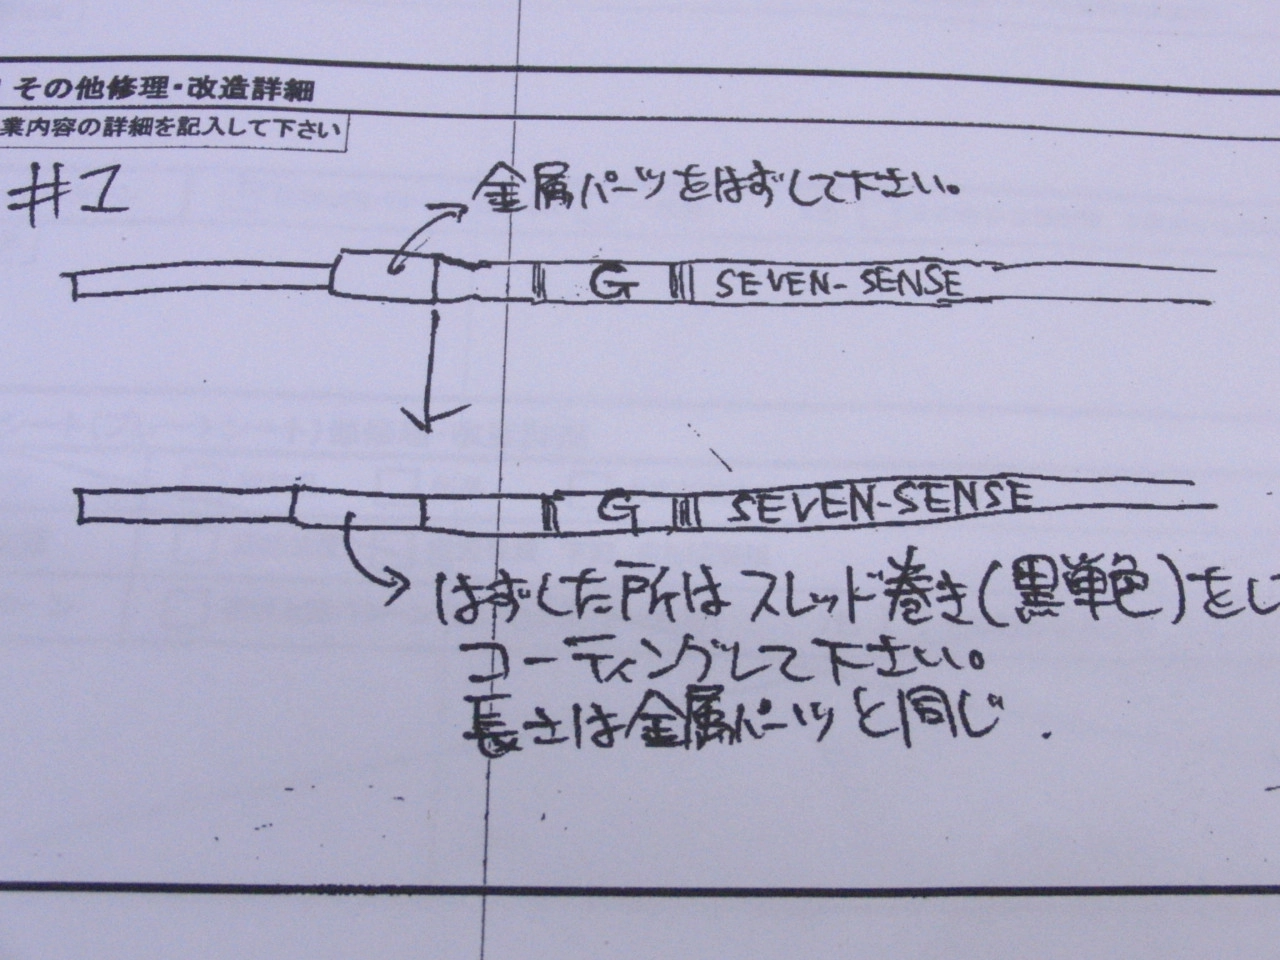 その他修理・改造詳細
業内容の詳細を記入して下さい
#1
金属パーツをはずして下さい。
G SEVEN-SENSE
G SEVEN-SENSE
はずした所はスレッド巻き(黒単色)をし
コーティングして下さい。
長さは金属パーツと同じ.